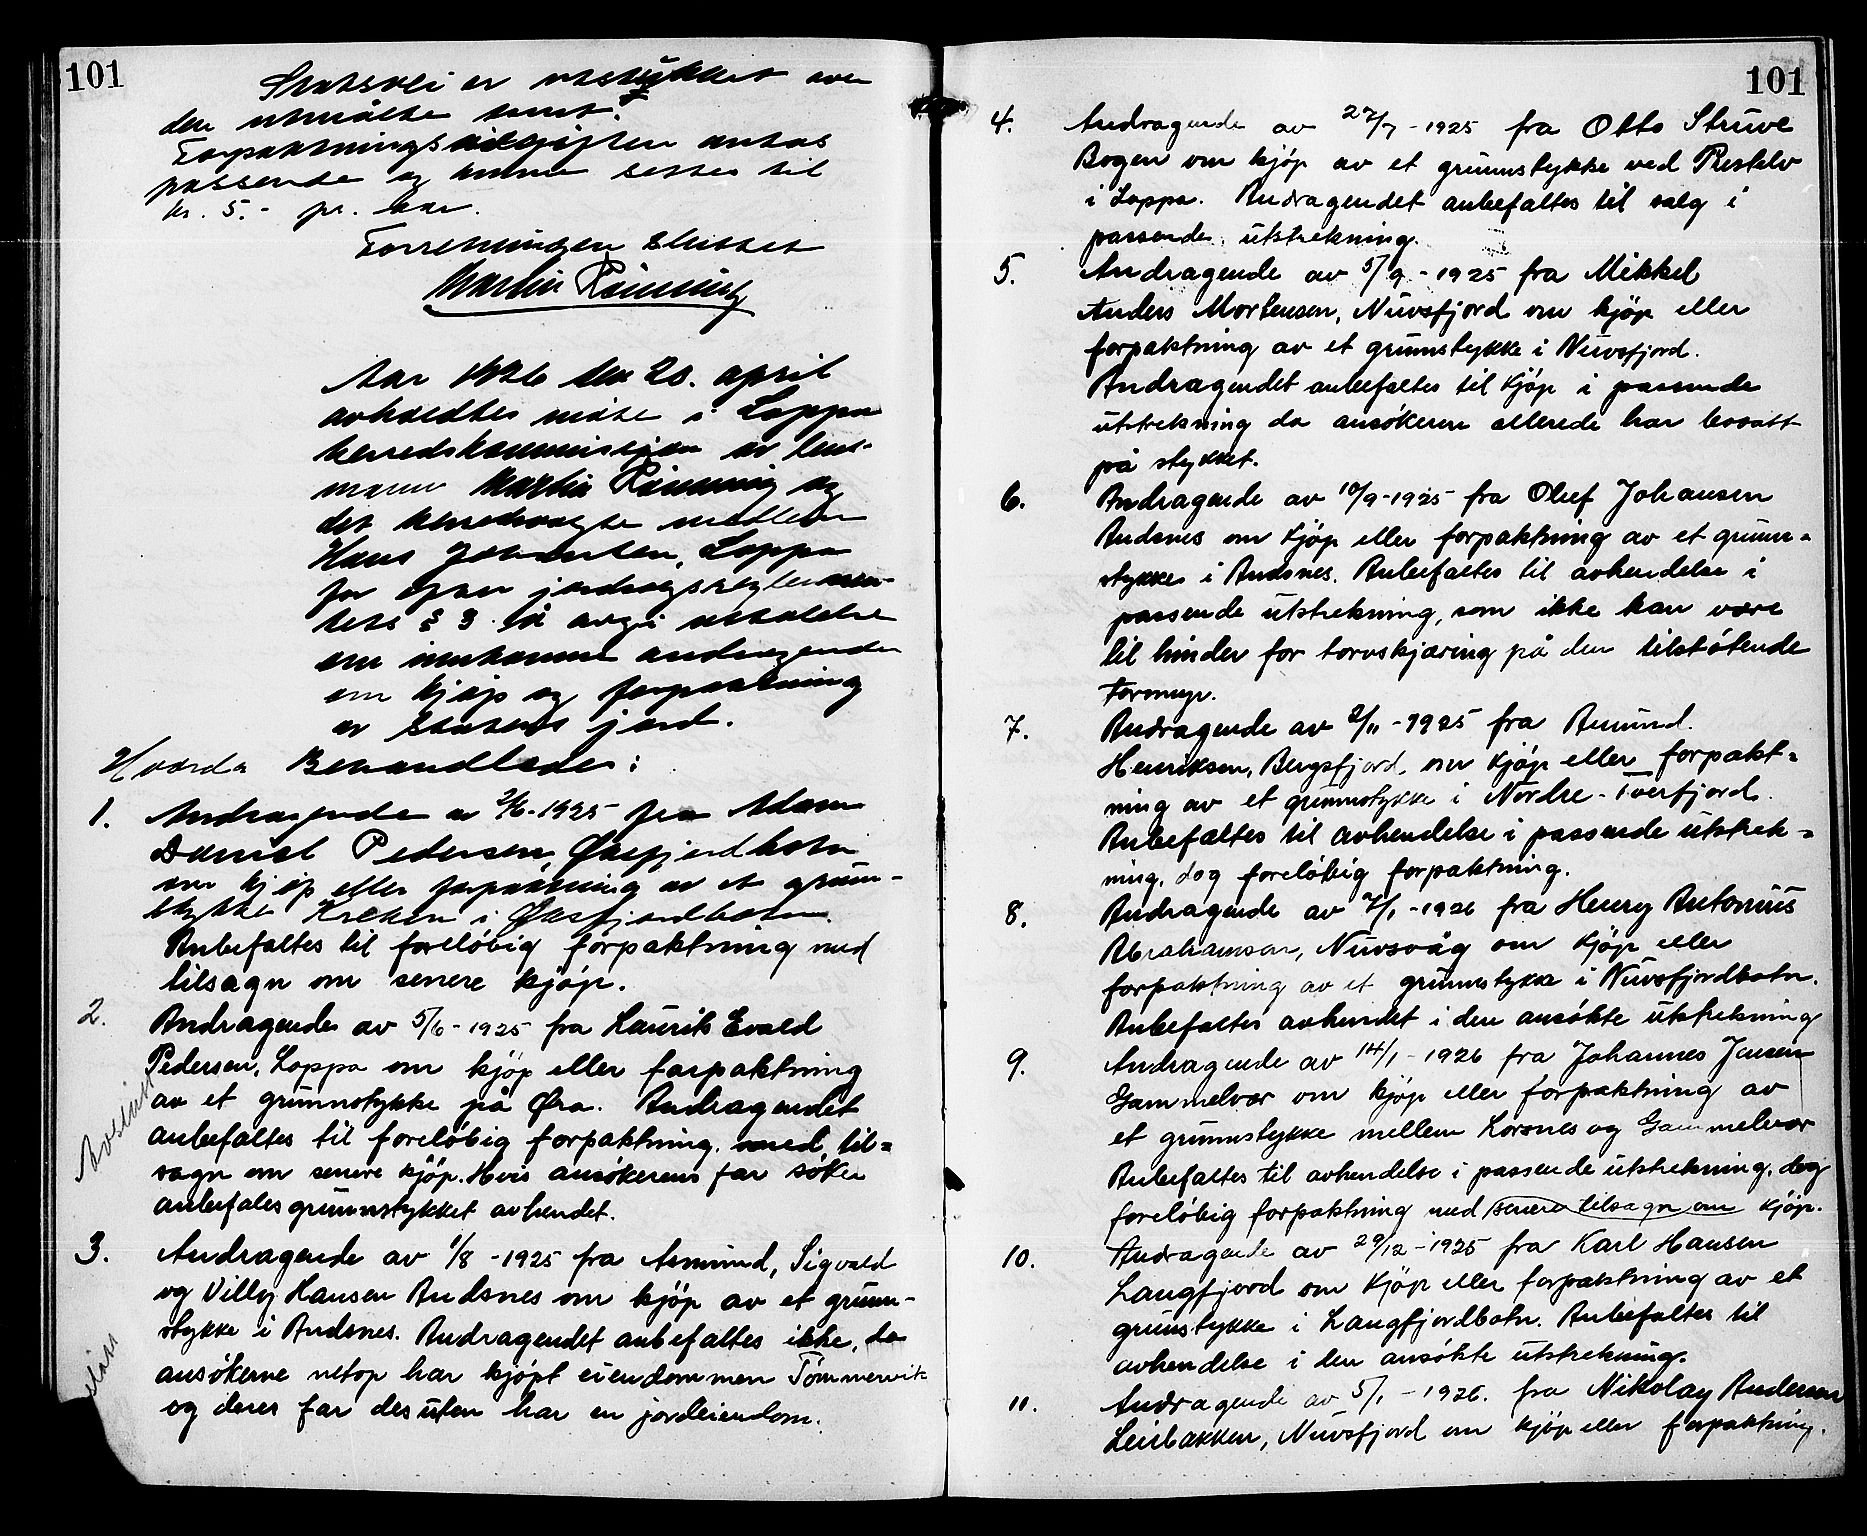 101
Statsvei er utstukket over
den utmålte tomt.
Forpaktningsavgiften antas
passende og kunne settes til
kr. 5.- pr. aar.
Forretningen sluttet
Martin Rønning
Aar 1926 den 20. april
avholdtes møte i Loppa
herredskommisjon av lens-
mann Martin Rønning og
det herredsvalgte medlem
Hans Johansen, Loppa
for efter jordsalgsreglemen-
tets § 3 å avgi uttalelse
om innkomne andragender
om kjøp og forpaktning
av statens jord.
Hvorda Behandledes:
1. Andragende av 2/6-1925 fra Adam
Daniel Pedersen, Øksfjordbotn
om kjøp eller forpaktning av et grunn-
stykke Kroken i Øksfjordbotn.
Anbefaltes til foreløbig forpaktning med
tilsagn om senere kjøp.
2. Andragende av 5/6-1925 fra Laurits Evald
Pedersen, Loppa om kjøp eller forpaktning
av et grunnstykke på Øra. Andragendet
anbefaltes til foreløbig forpaktning med til-
sagn om senere kjøp. Hvis ansøkerens far søker
anbefales grunnstykket avhendet.
Avslått
3. Andragende av 1/8-1925 fra Asmund, Sigvald
og Villy Hansen Andsnes om kjøp av et grunn-
stykke i Andsnes. Andragendet anbefaltes ikke, da
ansøkerne netop har kjøpt eiendommen Tømmervik
og deres far desuten har en jordeiendom.
101
4. Andragende av 27/7-1925 fra Otto Struve
Bogen om kjøp av et grunnstykke ved Prestelv
i Loppa. Andragendet anbefaltes til salg i
passende utstrekning.
5. Andragende av 5/9-1925 fra Mikkel
Anders Mortensen, Nuvsfjord om kjøp eller
forpaktning av et grunnstykke i Nuvsfjord.
Andragendet anbefaltes til kjøp i passende
utstrekning da ansøkeren allerede har bosatt
på stykket.
6. Andragende av 10/9-1925 fra Oluf Johansen
Andsnes om kjøp eller forpaktning av et grunn-
stykke i Andsnes. Anbefaltes til avhendelse i
passende utstrekning, som ikke kan være
til hinder for torvskjæring på den tilstøtende
Torvmyr.
7. Andragende av 2/11-1925 fra Amund
Henriksen, Bergsfjord om kjøp eller forpakt-
ning av et grunnstykke i Nordre-Tverfjord.
Anbefaltes til avhendelse i passende utstrek-
ning, dog foreløbig forpaktning.
8. Andragende av 7/1-1926 fra Henry Antonius
Abrahamsen, Nuvsvåg om kjøp eller
forpaktning av et grunnstykke i Nuvsfjordbotn.
Anbefaltes avhendet i den ansøkte utstrekning
9. Andragende av 14/1-1926 fra Johannes Jensen
Gammelvær om kjøp eller forpaktning av
et grunnstykke mellem Korsnes og Gammelvær
Anbefaltes til avhendelse i passende utstrekning, dog
foreløbig forpaktning med senere tilsagn om kjøp.
10. Andragende av 29/12-1925 fra Karl Hansen
Langfjord om kjøp eller forpaktning av et
grunstykke i Langfjordbotn. Anbefaltes til
avhendelse i den ansøkte utstrekning.
11. Andragende av 5/1-1926. fra Nikolay Andersen
Leirbakken, Nuvsfjord om kjøp eller forpaktning.